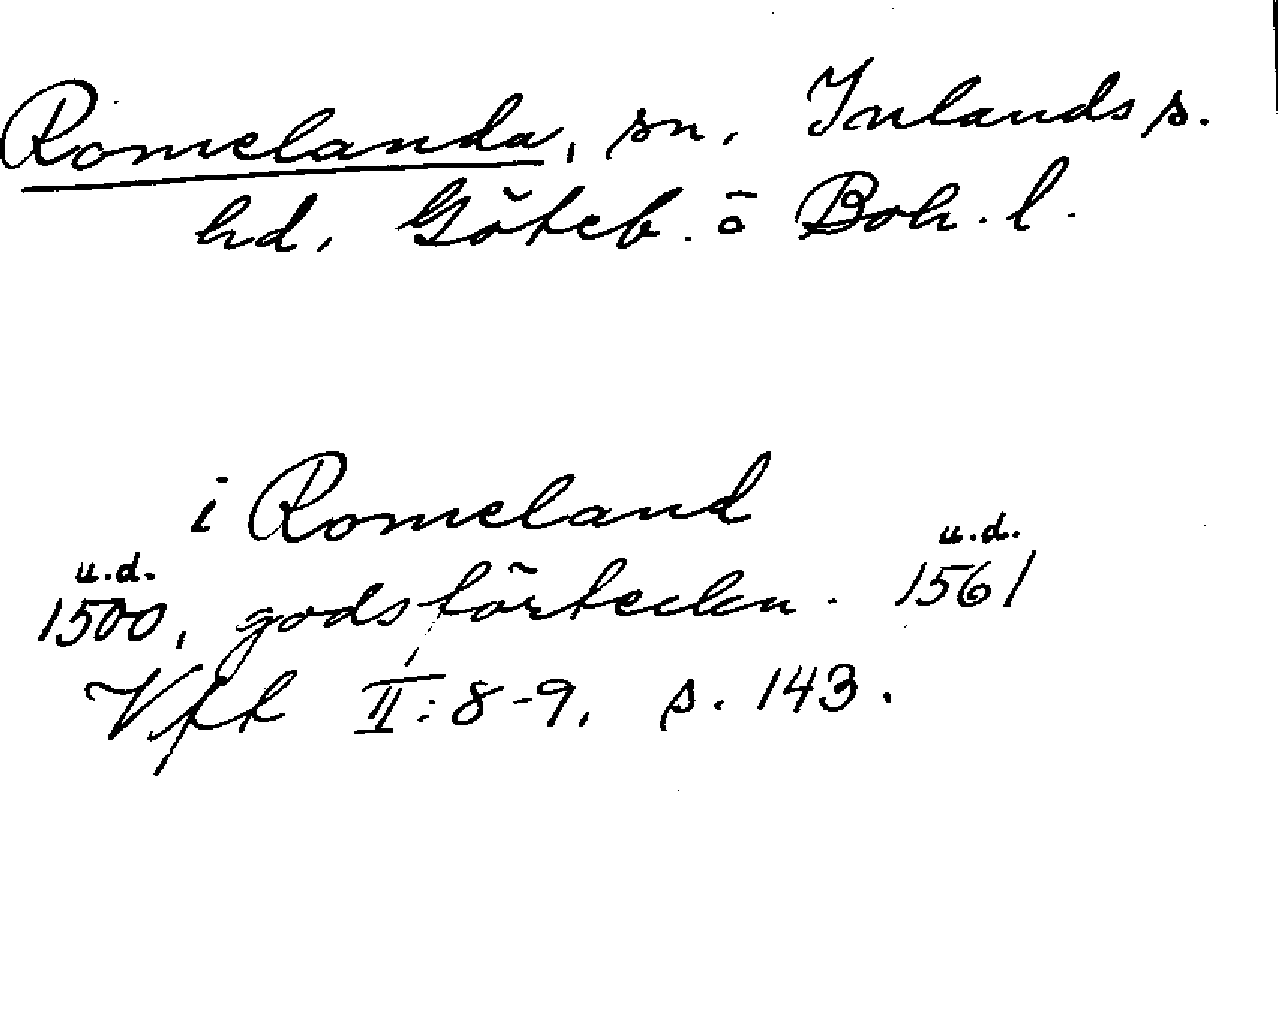 Romelanda, sn, Inlands s.
hd, Göteb. o Boh. l.
i Romeland
u.d. u.d.
1500, godsförteckn. 1561
Vft II: 8-9, s. 143.